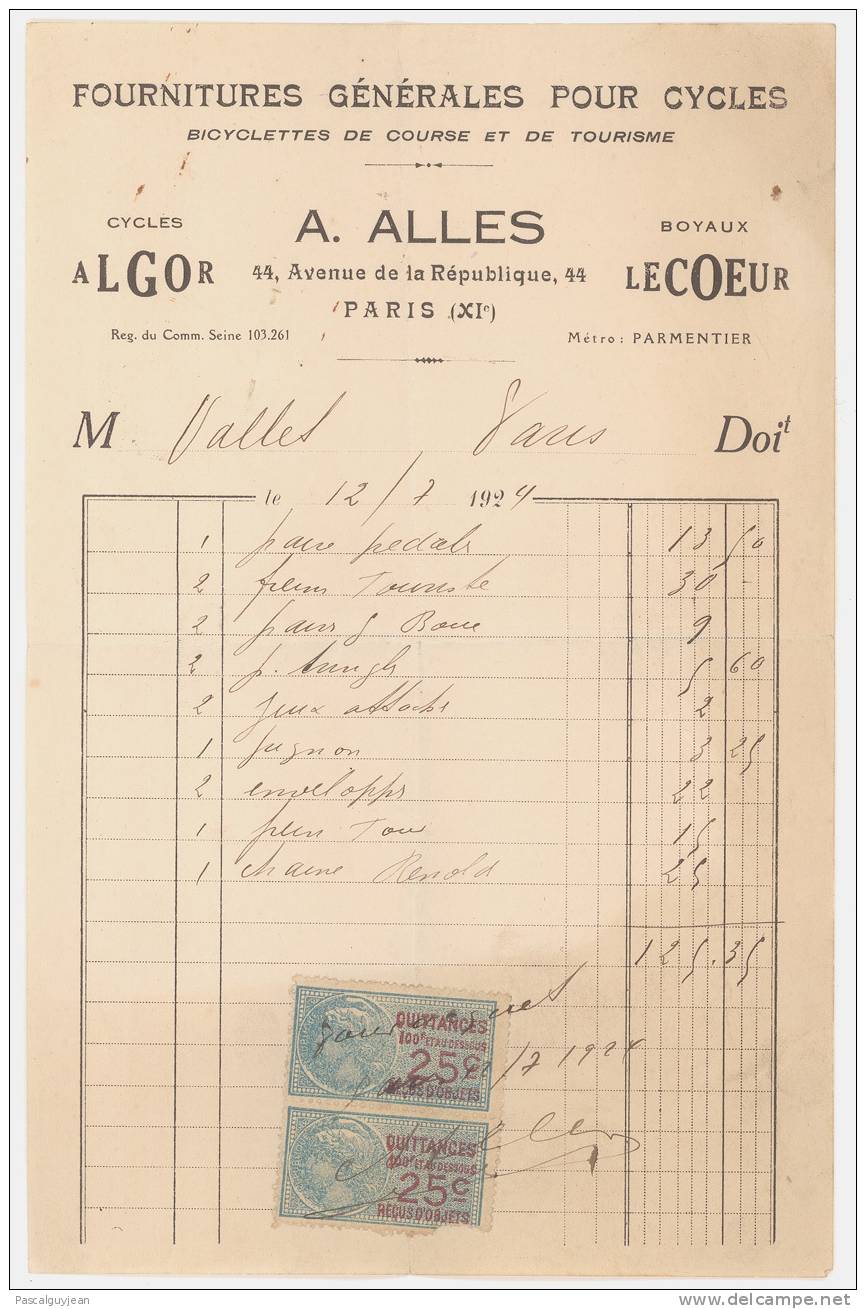 FOURNITURES GÉNÉRALES POUR CYCLES
BICYCLETTES DE COURSE ET DE TOURISME
CYCLES
ALGOR
A. ALLES
44, Avenue de la République, 44
PARIS (XIe)
BOYAUX
LECOEUR
Reg. du Comm. Seine 103.261
Métro: PARMENTIER
M Vallet Paris Doit
le 12/7 1924
1 paire pedals 13 50
2 freins Touriste 30 -
2 pairs g Boue 9
2 p. 5 60
2 jeux attache 2
1 pignon 3 25
2 envelopps 22
1 frein Tou 15
1 chaine Renold 25
125.35
Pour acquet
/7 1924
QUITTANCES
100F ET AU DESSOUS
25c
REÇUS D'OBJETS
QUITTANCES
100F ET AU DESSOUS
25c
REÇUS D'OBJETS
Alles
Pascalguyjean
www.delcampe.net